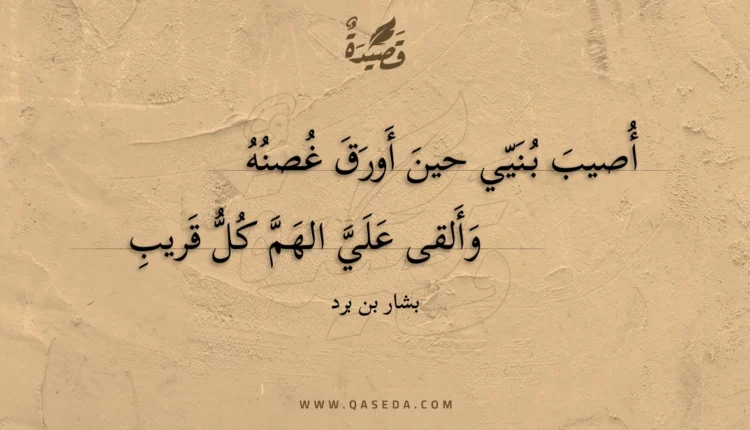 قَصِيْدَةٌ
أُصيبَ بُنَيّي حينَ أَورَقَ غُصنُهُ
وَأَلقى عَلَيَّ الهَمَّ كُلُّ قَريبِ
بشار بن برد
WWW.QASEDA.COM